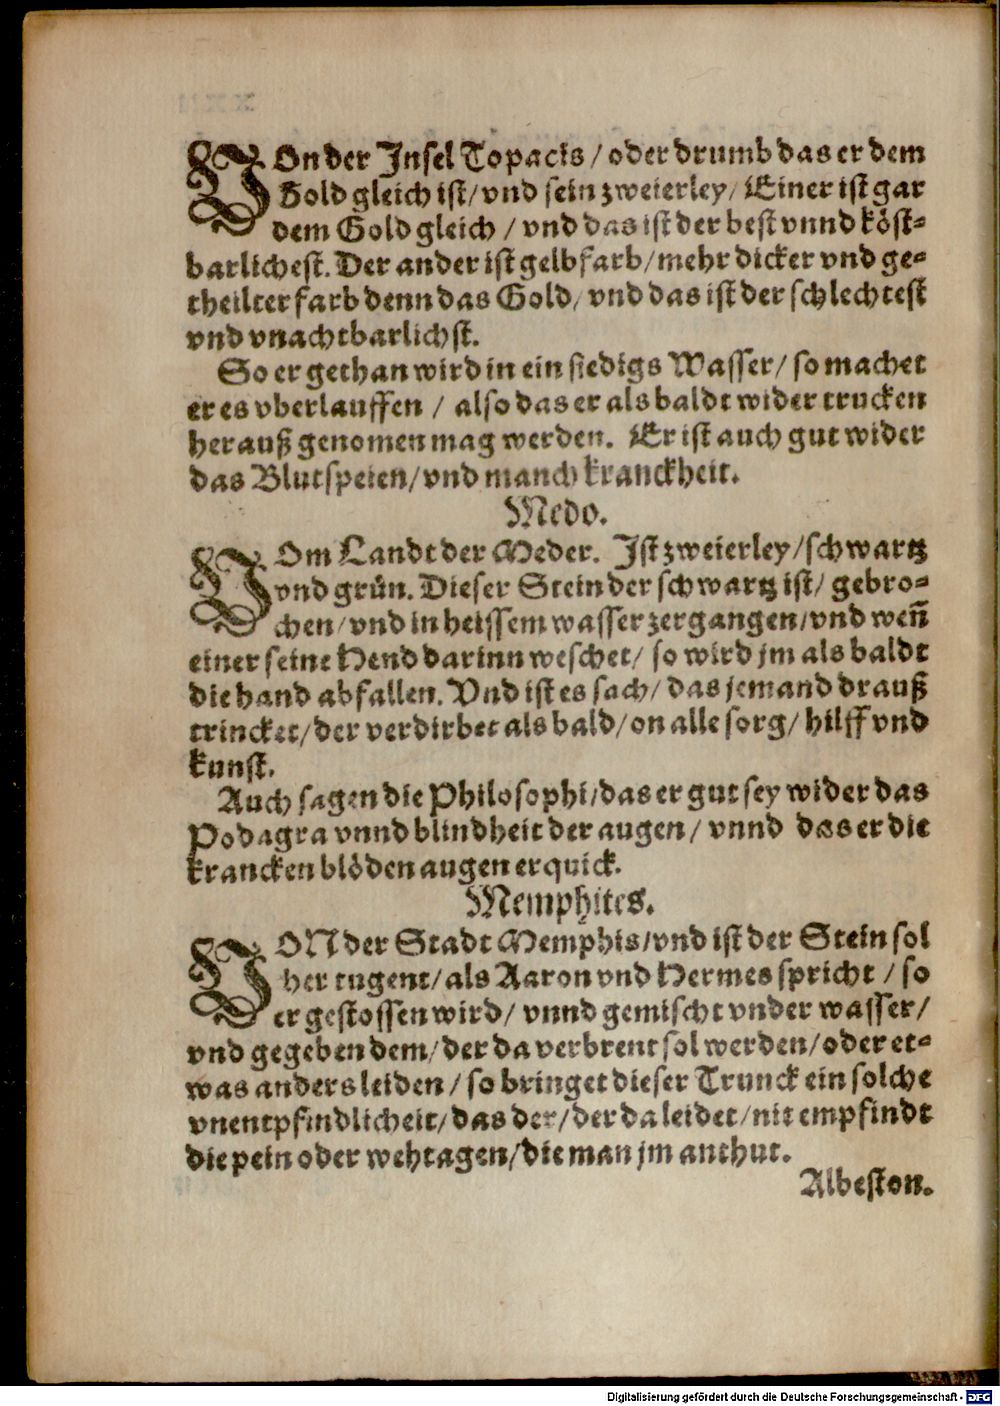 VOn der Insel Topacks / oder drumb das er dem
Gold gleich ist / vnd sein zweierley / Einer ist gar
dem Gold gleich / vnd das ist der best vnnd köst-
barlichest. Der ander ist gelbfarb / mehr dicker vnd ge-
theilter farb denn das Gold / vnd das ist der schlechtest
vnd vnachtbarlichst.
So er gethan wird in ein siedigs Wasser / so machet
er es vberlauffen / also das er als baldt wider trucken
herauß genomen mag werden. Er ist auch gut wider
das Blutspeien / vnd manch kranckheit.
Medo.
VOm Landt der Meder. Ist zweierley / schwartz
vnd grün. Dieser Stein der schwartz ist / gebro-
chen / vnd in heissem wasser zergangen / vnd weñ
einer seine Hend darinn weschet / so wird jm als baldt
die hand abfallen. Vnd ist es sach / das jemand drauß
trincket / der verdirbet als bald / on alle sorg / hilff vnd
kunst.
Auch sagen die Philosophi / das er gut sey wider das
Podagra vnnd blindheit der augen / vnnd das er die
krancken blöden augen erquick.
Memphites.
VON der Stadt Memphis / vnd ist der Stein sol
her tugent / als Aaron vnd Hermes spricht / so
er gestossen wird / vnnd gemischt vnder wasser /
vnd gegeben dem / der da verbrent sol werden / oder et-
was anders leiden / so bringet dieser Trunck ein solche
vnentpfindlicheit / das der / der da leidet / nit empfindt
die pein oder wehtagen / die man jm anthut.
Albeston.
Digitalisierung gefördert durch die Deutsche Forschungsgemeinschaft - DFG